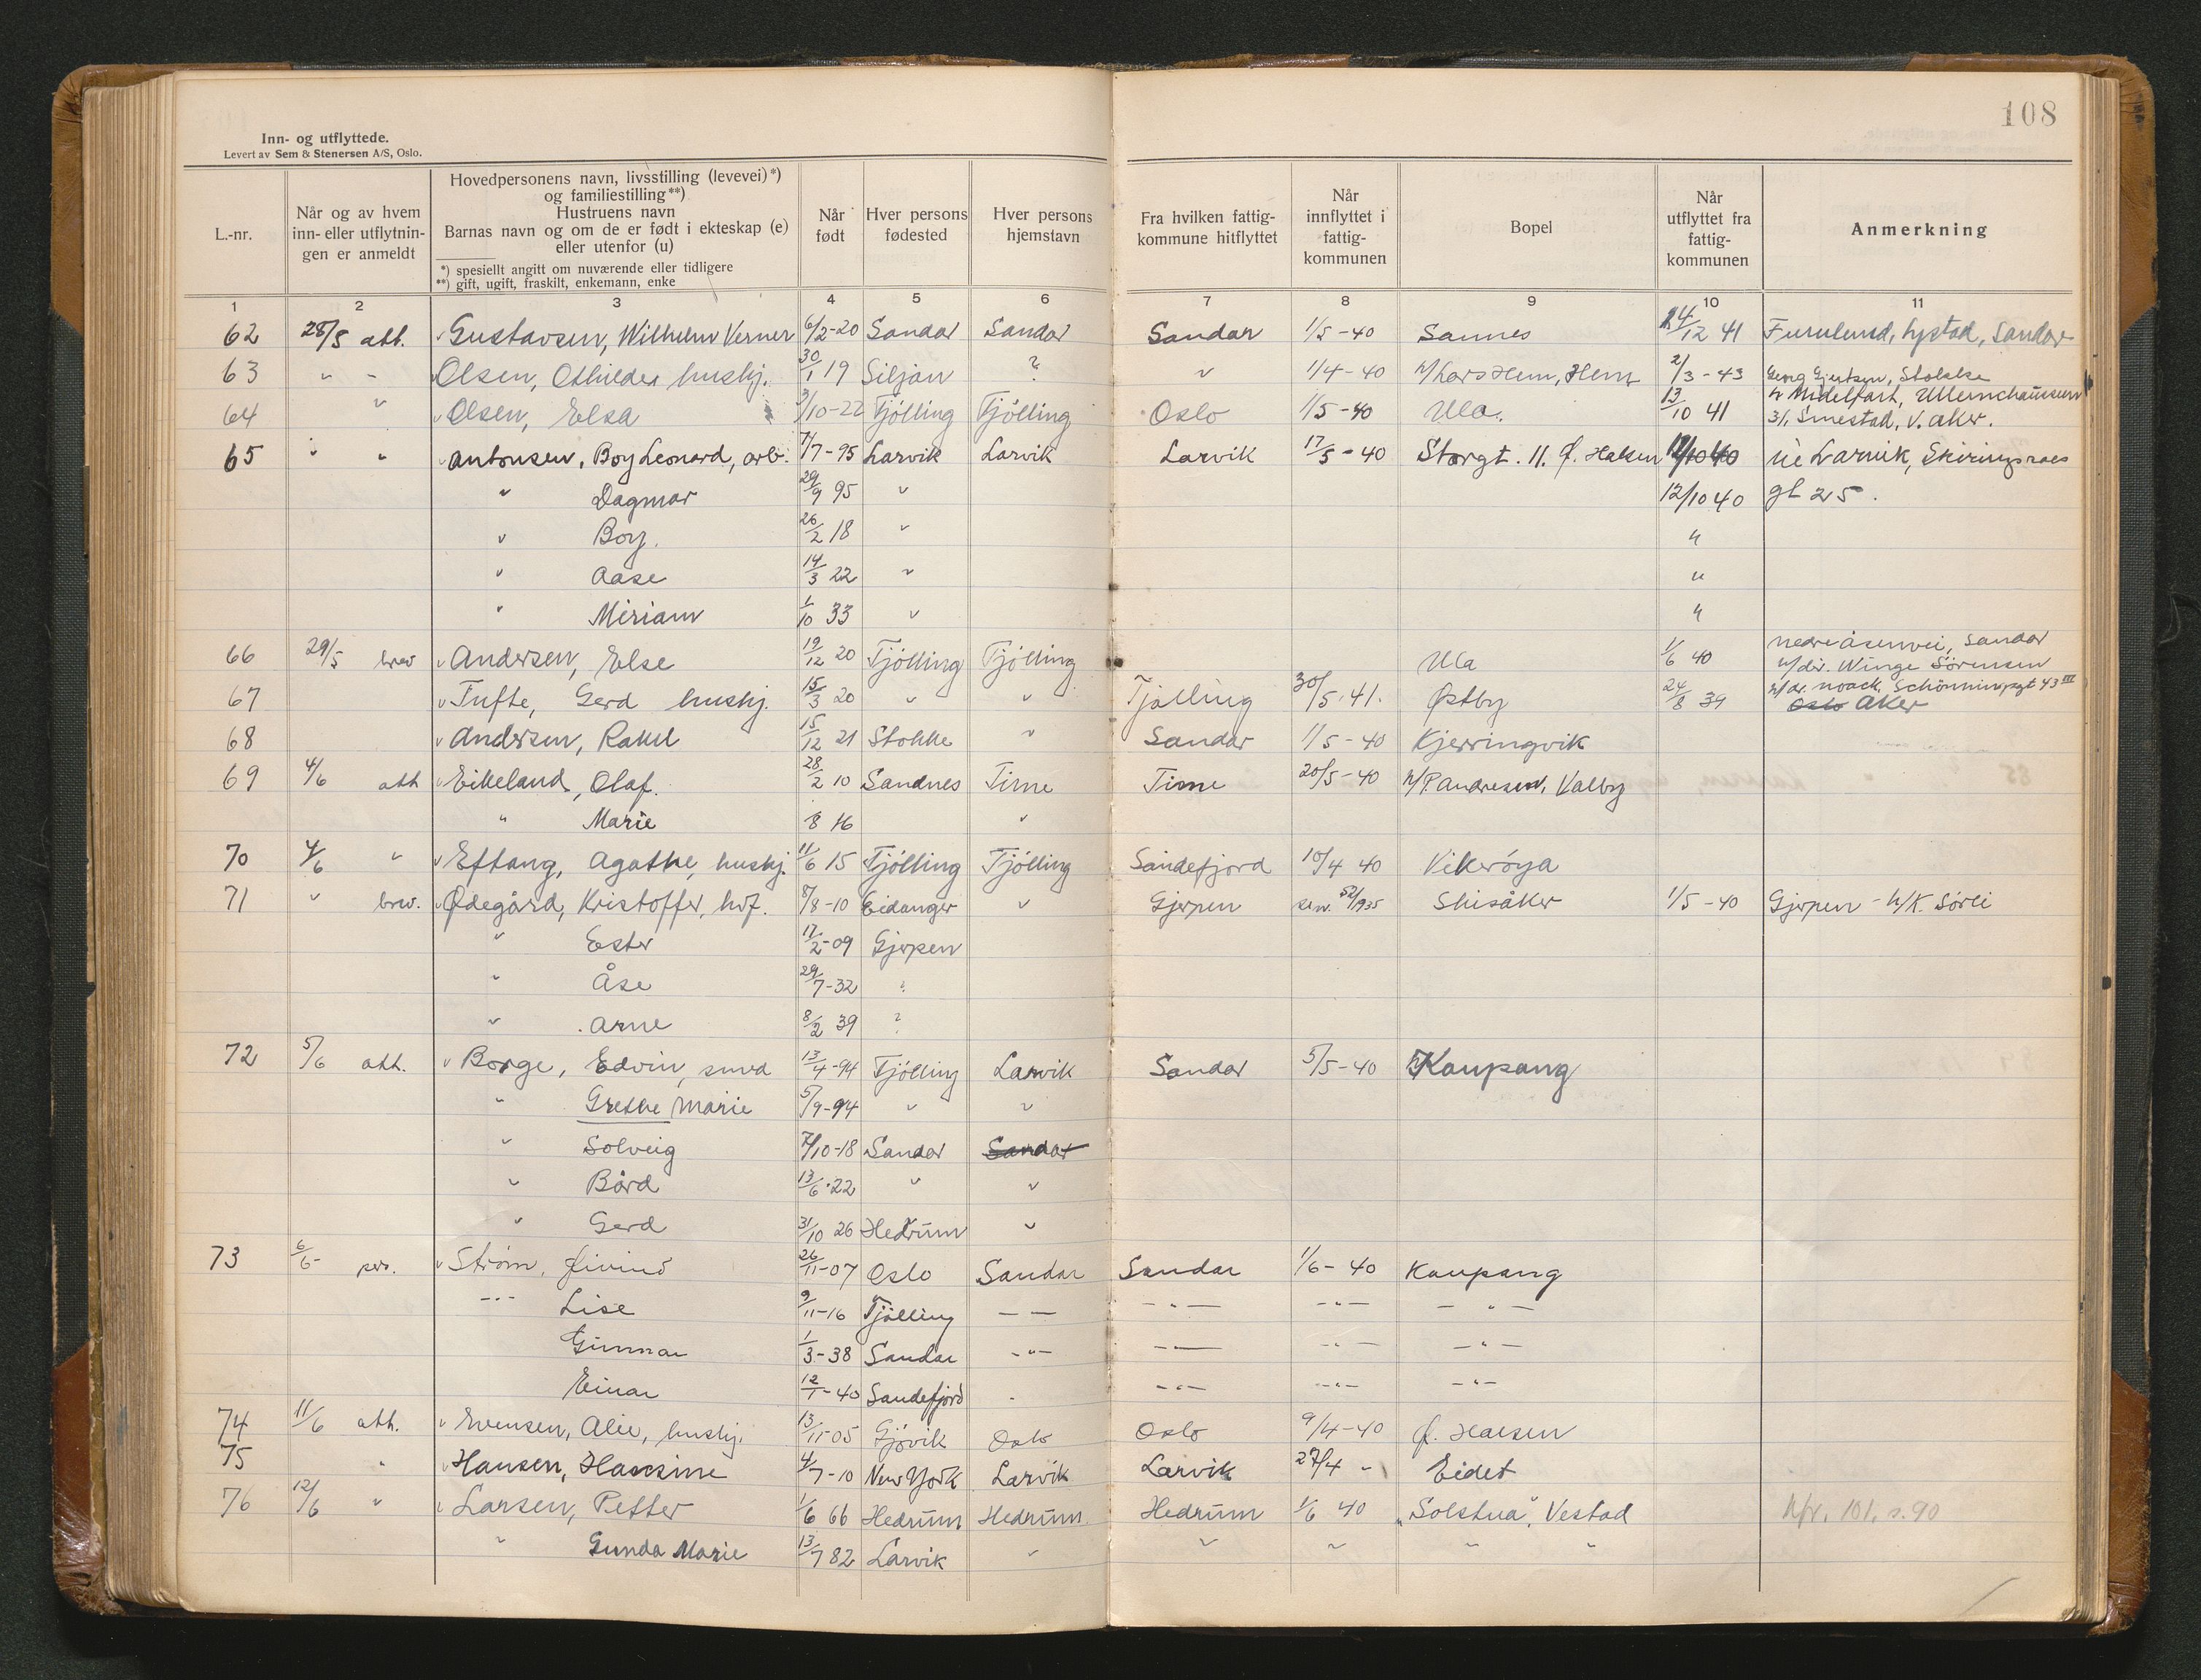 108
Inn- og utflyttede.
Levert av Sem & Stenersen A/S, Oslo.
L.-nr.
Når og av hvem inn- eller utflytnin-gen er anmeldt
Hovedpersonens navn, livsstilling (levevei) *) og familiestilling **)
Hustruens navn
Barnas navn og om de er født i ekteskap (e) eller utenfor (u)
*) spesiellt angitt om nuværende eller tidligere
**) gift, ugift, fraskilt, enkemann, enke
Når født
Hver persons fødested
Hver persons hjemstavn
Fra hvilken fattig-kommune hitflyttet
Når innflyttet i fattig-kommunen
Bopel
Når utflyttet fra fattig-kommunen
Anmerkning
1 2 3 4 5 6 7 8 9 10 11
62 28/5 att. Gustavsen, Wilhelm Verner 6/2-20 Sandar Sandar Sandar 1/5-40 Sannes 24/12 41 Furulund, Lystad, Sandar
63 " - Olsen, Othilder hushj. 30/1 19 Siljan ? " 1/4-40 h/Lars Hem, Hem 2/3-43 Georg Gjertsen, Stokke
64 " Olsen, Elsa 3/10-22 Tjölling Tjölling Oslo 1/5-40 Ula. 13/10 41 h. Midelfart, Ullernchausseen 31, Smestad, V. Aker.
65 " " Antonsen, Boy Leonard, arb. 7/7-95 Larvik Larvik Larvik 17/5-40 Storgt. 11. Ø. Halsen 12/10 40 til Larvik, Skiringsaes
" Dagmar 29/9 95 " 12/10 40 gt 25.
" Boy. 26/2 18 " "
" Aase 14/3 22 " "
" Miriam 1/10 33 " "
66 29/5 brev Andersen, Else 19/12 20 Tjölling Tjölling Ula 1/6 40 nedre Åsenvei, Sandar h/dir. Winge Sörensen
67 Tufte, Gerd hushj. 15/3 20 " " Tjølling 30/5-41. Østby 24/8 39 h/dr. Noack, Schönningsgt 43 III Oslo Aker
68 Andersen, Rakel 15/12 21 Stokke " Sandar 1/5-40 Kjerringvik
69 4/6 att Eikeland, Olaf. 28/2 10 Sandnes Time Time 20/5-40 h/P. Andresen, Valby
" Marie 8 16 "
70 4/6 " Eftang, Agathe, hushj. 11/6 15 Tjölling Tjölling Sandefjord 10/4 40 Vikeröya
71 " brev. Ødegård, Kristoffer, hvf. 8/8-10 Eidanger " Gjerpen Skisåker 1/5-40 Gjerpen - h/K. Sörli
" Ester 17/2-09 Gjerpen
" Åse 29/7-32 "
" Arne 8/2 39 ?
72 5/6 att. Borge, Edvin, smed 13/4-94 Tjölling Larvik Sandar 5/5-40 Kaupang
" Grethe Marie 5/9-94 " "
" Solveig 7/10-18 Sandar Sandar
" Bård 13/6-22 " "
" Gerd 31/10 26 Hedrum "
73 6/6- pers. Strøm, Øivind 26/11-07 Oslo Sandar Sandar 1/6-40 Kaupang
--- Lise 9/11-16 Tjølling — — — " — — " — — " —
Gunnar 1/3-38 Sandar - " - — — - " - — " —
Einar 12/1-40 Sandefjord - - " - - " - - " -
74 11/6 att. Evensen, Alie, hushj. 13/11-05 Gjövik Oslo Oslo 9/4-40 Ø. Halsen
75 " Hansen, Hansine 4/7-10 New York Larvik Larvik 27/4 - Eidet
76 12/6 " Larsen, Petter 1/6 66 Hedrum Hedrum Hedrum 1/6 40 "Solstua", Vestad Nfr. 101, s. 90
" Gunda Marie 13/7 82 Larvik " " " " "